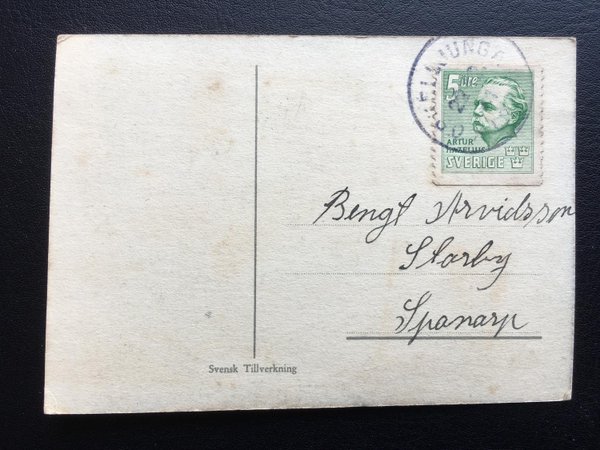 ÖRKELLJUNGA
5 öre
ARTUR
HAZELIUS
SVERIGE
Bengt Arvidsson
Starby
Spanarp
Svensk Tillverkning